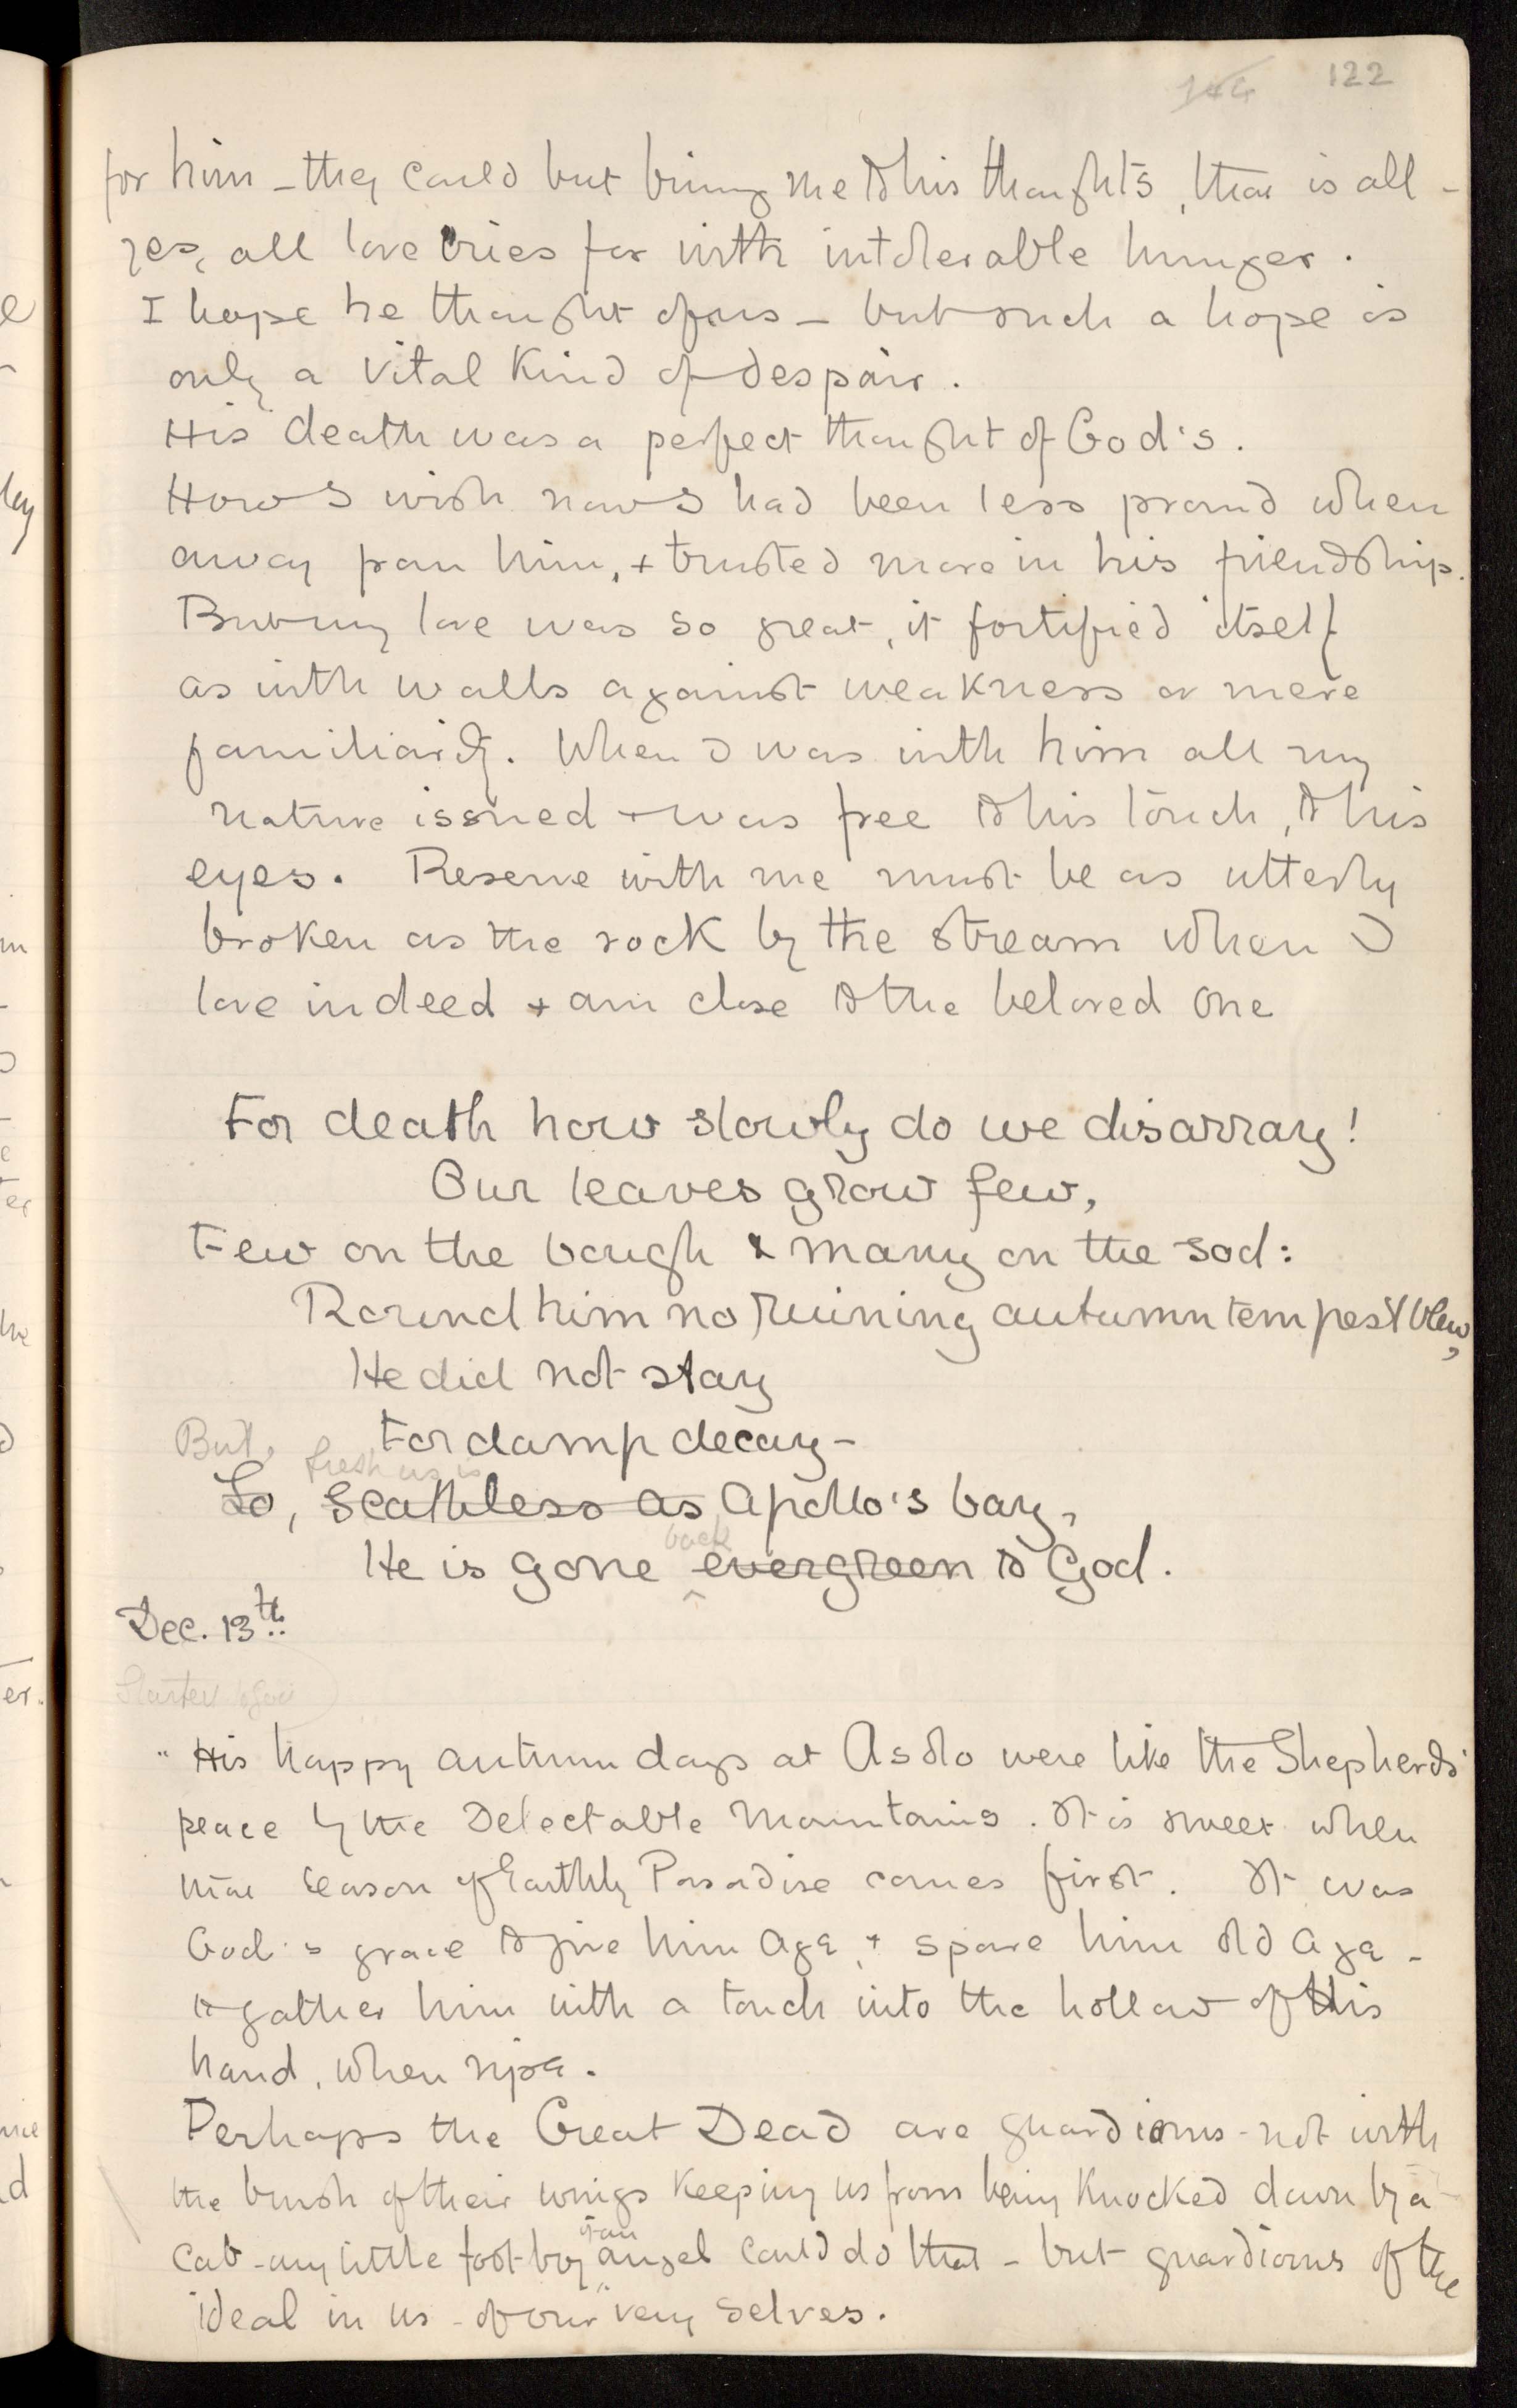 122
for him – they could but bring me to his thoughts, that is all –
yes, all love cries for with intolerable hunger.
I hope he thought of us – but such a hope is
only a vital kind of despair.
His death was a perfect thought of God's.
How I wish now I had been less proud when
away from him, + trusted more in his friendship.
But my love was so great, it fortified itself
as with walls against weakness or mere
familiarity. When I was with him all my
nature issued + was free to his touch, to his
eyes. Reserve with me must be as utterly
broken as the rock by the stream when I
love indeed + am close to the beloved One
For death how slowly do we disarray!
Our leaves grow few,
Few on the bough & many on the sod:
Round him no ruining autumn tempest blew,
He did not stay
For damp decay –
But, fresh as is
Lo, scathless as Apollo's bay,
back
He is gone evergreen to God.
Dec. 13th
"His happy autumn days at Asolo were like the Shepherds'
peace by the Delectable Mountains. It is sweet when
the season of Earthly Paradise comes first. It was
God's grace to give him age, + spare him old age –
to gather him with a touch into the hollow of his
hand, when ripe.
Perhaps the Great Dead are guardians – not with
the brush of their wings keeping us from being knocked down by a
cab – any little foot-boy of an angel could do that – but guardians of the
ideal in us – of our very selves.